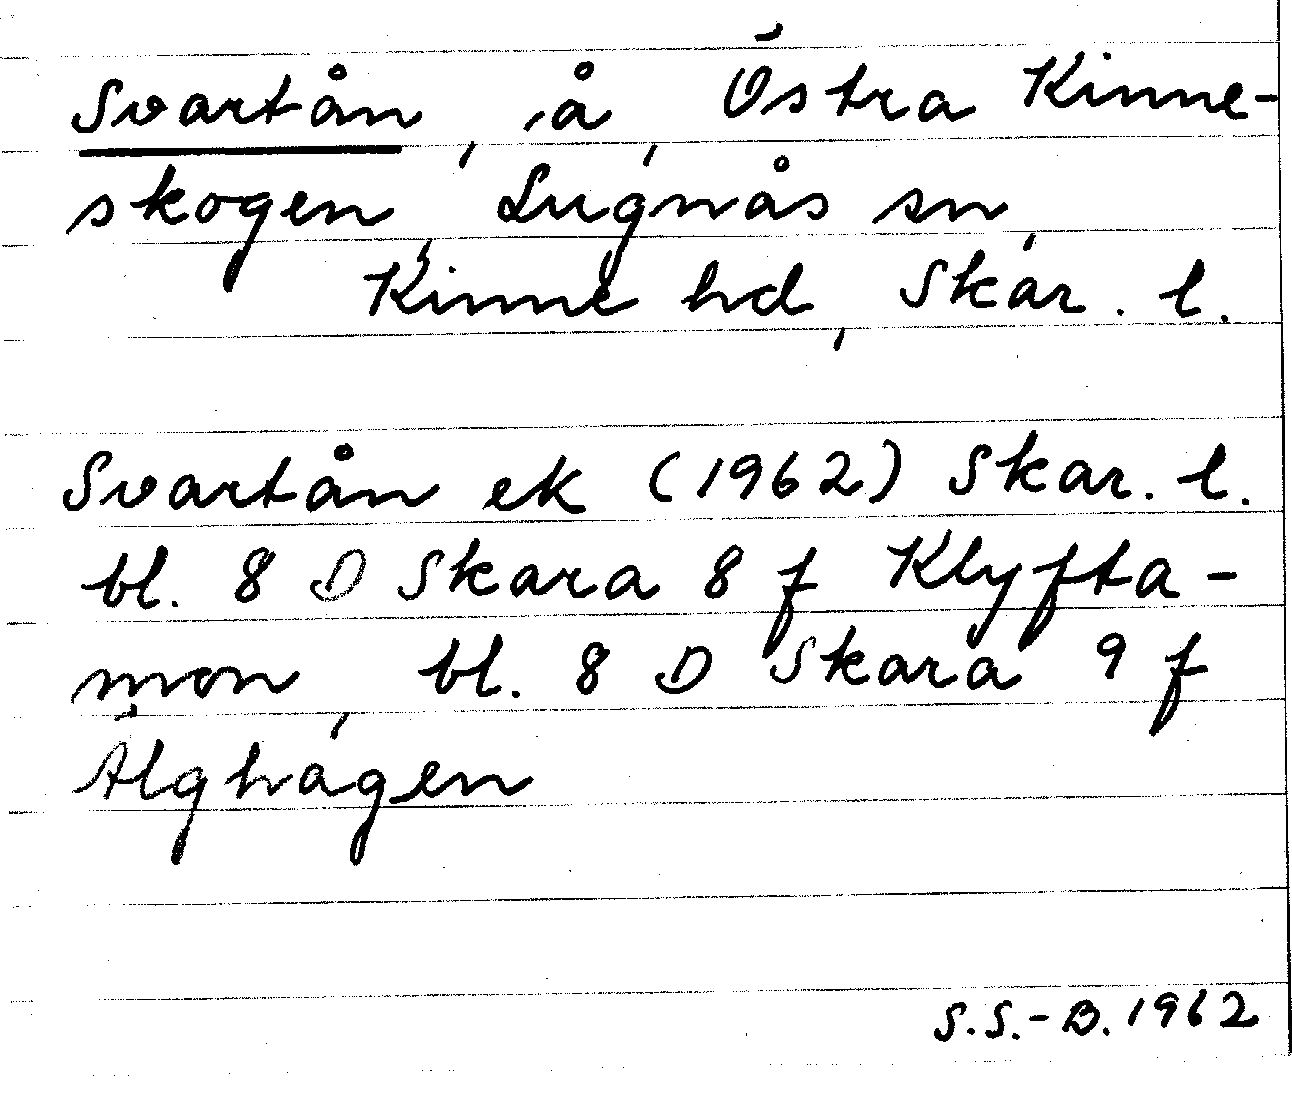 Svartån, å, Östra Kinne-
skogen, Lugnås sn,
Kinne hd, Skar. l.
Svartån ek (1962) Skar. l.
bl. 8 D Skara 8 f Klyfta-
mon, bl. 8 D Skara 9 f
Älghagen
S.S.-B. 1962